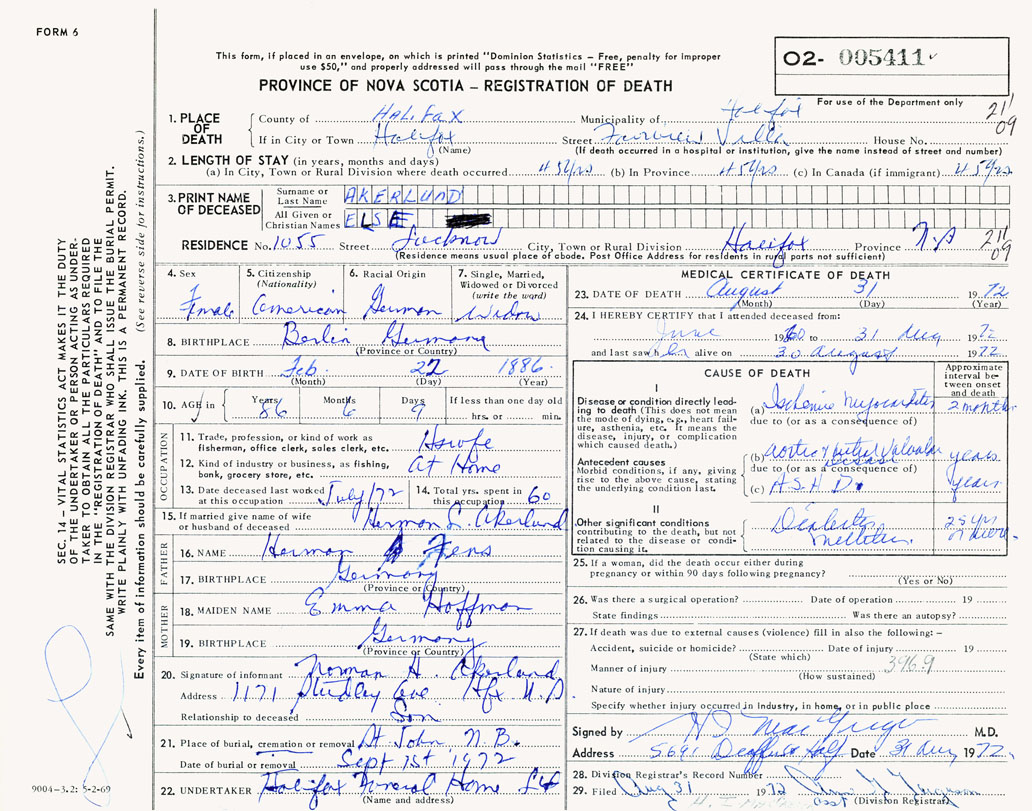 FORM 6
This form, if placed in an envelope, on which is printed "Dominion Statistics – Free, penalty for improper
use $50," and properly addressed will pass through the mail "FREE"
O2- 005411
For use of the Department only
PROVINCE OF NOVA SCOTIA – REGISTRATION OF DEATH
21/
09
1. PLACE OF DEATH
County of HALIFAX Municipality of Halifax
If in City or Town Halifax Street Fairview Villa House No.
(Name) (If death occurred in a hospital or institution, give the name instead of street and number)
2. LENGTH OF STAY (in years, months and days)
(a) In City, Town or Rural Division where death occurred 45 yrs (b) In Province 45 yrs (c) In Canada (if immigrant) 45 yrs.
3. PRINT NAME OF DECEASED
Surname or Last Name AKERLUND
All Given or Christian Names ELSE
RESIDENCE No. 1055 Street Lucknow City, Town or Rural Division Halifax Province N.S
21/
09
(Residence means usual place of abode. Post Office Address for residents in rural parts not sufficient)
4. Sex
Female
5. Citizenship (Nationality)
American
6. Racial Origin
German
7. Single, Married, Widowed or Divorced (write the word)
Widow
8. BIRTHPLACE Berlin Germany
(Province or Country)
9. DATE OF BIRTH Feb. 22 1886
(Month) (Day) (Year)
10. AGE in Years 86 Months 6 Days 9 If less than one day old
hrs. or min.
OCCUPATION
11. Trade, profession, or kind of work as
fisherman, office clerk, sales clerk, etc. Hswfe
12. Kind of industry or business, as fishing,
bank, grocery store, etc. At Home
13. Date deceased last worked at this occupation July/72
14. Total yrs. spent in this occupation 60
15. If married give name of wife
or husband of deceased Herman L. Akerlund
FATHER
16. NAME Herman Fens
17. BIRTHPLACE Germany
(Province or Country)
MOTHER
18. MAIDEN NAME Emma Hoffman
19. BIRTHPLACE Germany
(Province or Country)
20. Signature of informant Norman H. Akerlund
Address 1171 Studley Ave Hfx N.S.
Relationship to deceased Son
21. Place of burial, cremation or removal St John N.B.
Date of burial or removal Sept 1st 1972
22. UNDERTAKER Halifax Funeral Home Ltd
(Name and address)
MEDICAL CERTIFICATE OF DEATH
23. DATE OF DEATH August 31 1972
(Month) (Day) (Year)
24. I HEREBY CERTIFY that I attended deceased from:
June 19 to 31 Aug 1972
and last saw her alive on 30 August 1972
CAUSE OF DEATH
Approximate interval between onset and death
I
Disease or condition directly leading to death (This does not mean the mode of dying, e.g., heart failure, asthenia, etc. It means the disease, injury, or complication which caused death.)
(a) Ischemic Myocarditis 2 months
due to (or as a consequence of)
Antecedent causes
Morbid conditions, if any, giving rise to the above cause, stating the underlying condition last.
(b) Aortic & Mitral Valvular years
due to (or as a consequence of)
(c) A.S.H.D. years
II
Other significant conditions
contributing to the death, but not related to the disease or condition causing it.
Diabetes
Mellitus. 25 yrs
25. If a woman, did the death occur either during
pregnancy or within 90 days following pregnancy?
(Yes or No)
26. Was there a surgical operation? Date of operation 19
State findings Was there an autopsy?
27. If death was due to external causes (violence) fill in also the following: –
Accident, suicide or homicide? Date of injury 19
(State which)
Manner of injury 396.9
(How sustained)
Nature of injury
Specify whether injury occurred in Industry, in home, or in public place
Signed by M.D.
Address 5691 Date 31 Aug 1972
28. Division Registrar's Record Number
29. Filed Aug 31 1972
(Division Registrar)
SEC. 14 – VITAL STATISTICS ACT MAKES IT THE DUTY
OF THE UNDERTAKER OR PERSON ACTING AS UNDER-
TAKER TO OBTAIN ALL THE PARTICULARS REQUIRED
IN THE "REGISTRATION OF DEATH" AND TO FILE THE
SAME WITH THE DIVISION REGISTRAR WHO SHALL ISSUE THE BURIAL PERMIT.
WRITE PLAINLY WITH UNFADING INK. THIS IS A PERMANENT RECORD.
Every item of information should be carefully supplied. (See reverse side for instructions.)
9004-3.2: 5-2-69